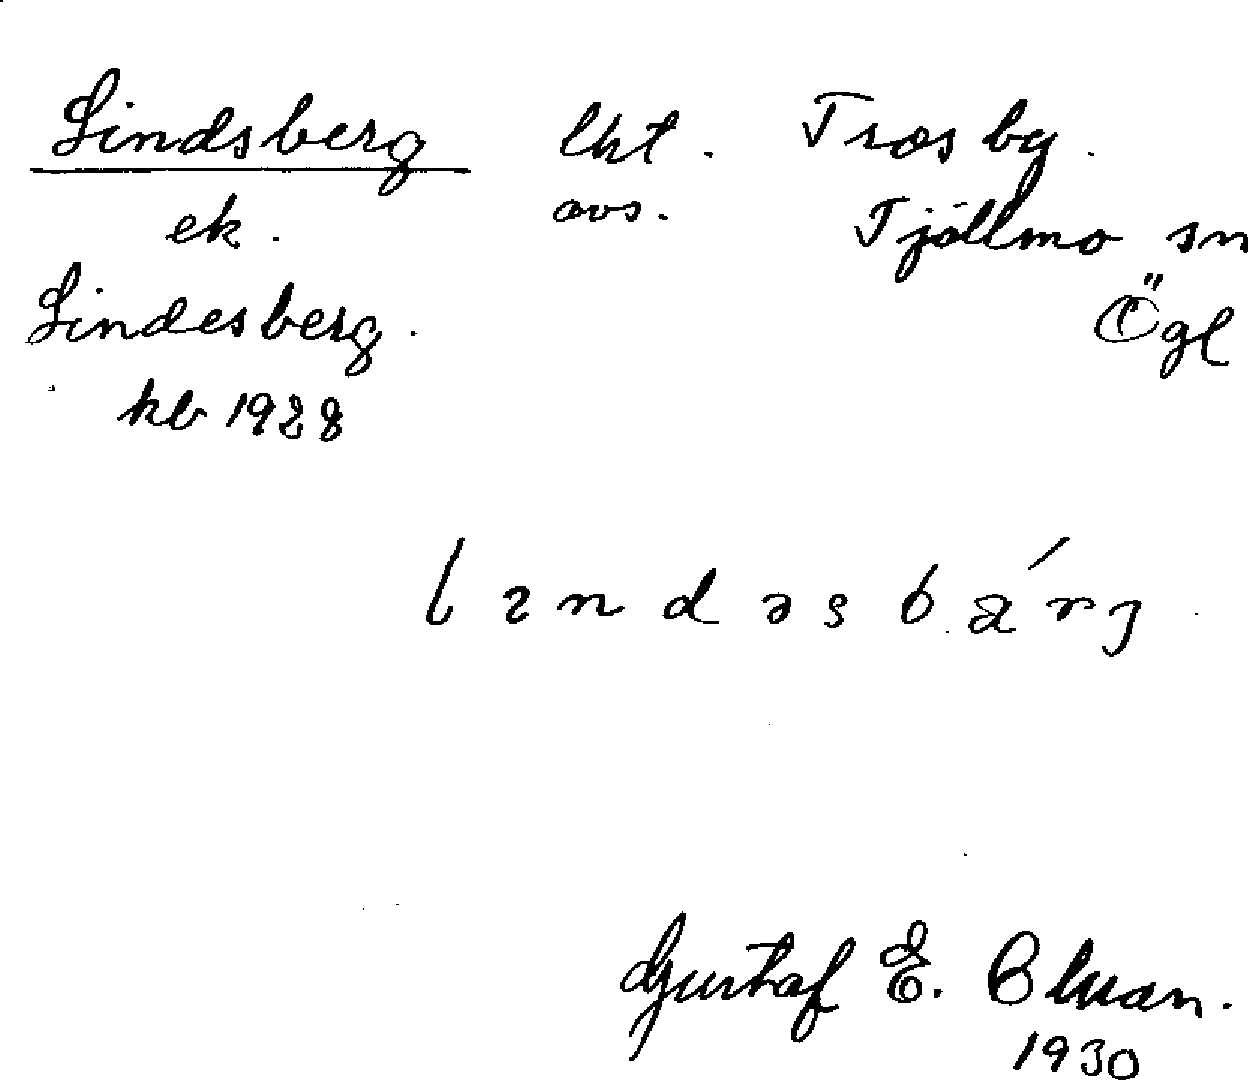 Lindsberg lht. Trosby.
ek. avs. Tjällmo sn
Lindesberg. Ögl
kb 1928
lɪndəsbǽrj
Gustaf E.
1930